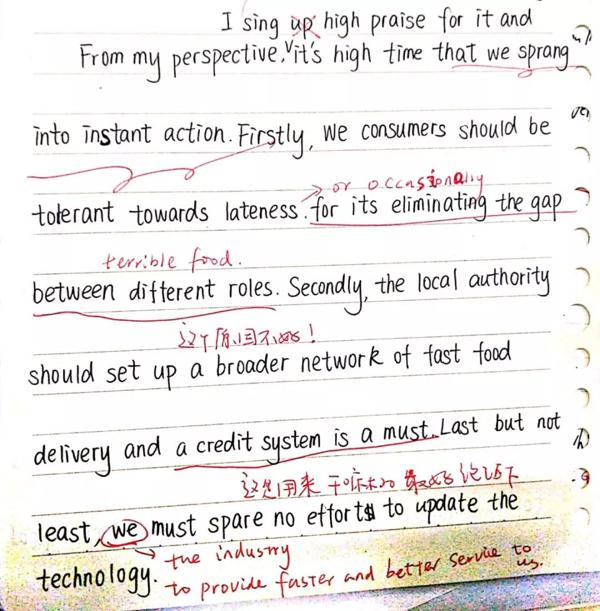 I sing up high praise for it and
From my perspective, it's high time that we sprang
into instant action. Firstly, we consumers should be
or occasionally
tolerant towards lateness for its eliminating the gap
terrible food.
between different roles. Secondly, the local authority
这个原因不好！
should set up a broader network of fast food
delivery and a credit system is a must. Last but not
这是用来干嘛的 最好说明下
least, we must spare no efforts to update the
the industry
technology.
to provide faster and better service to us.